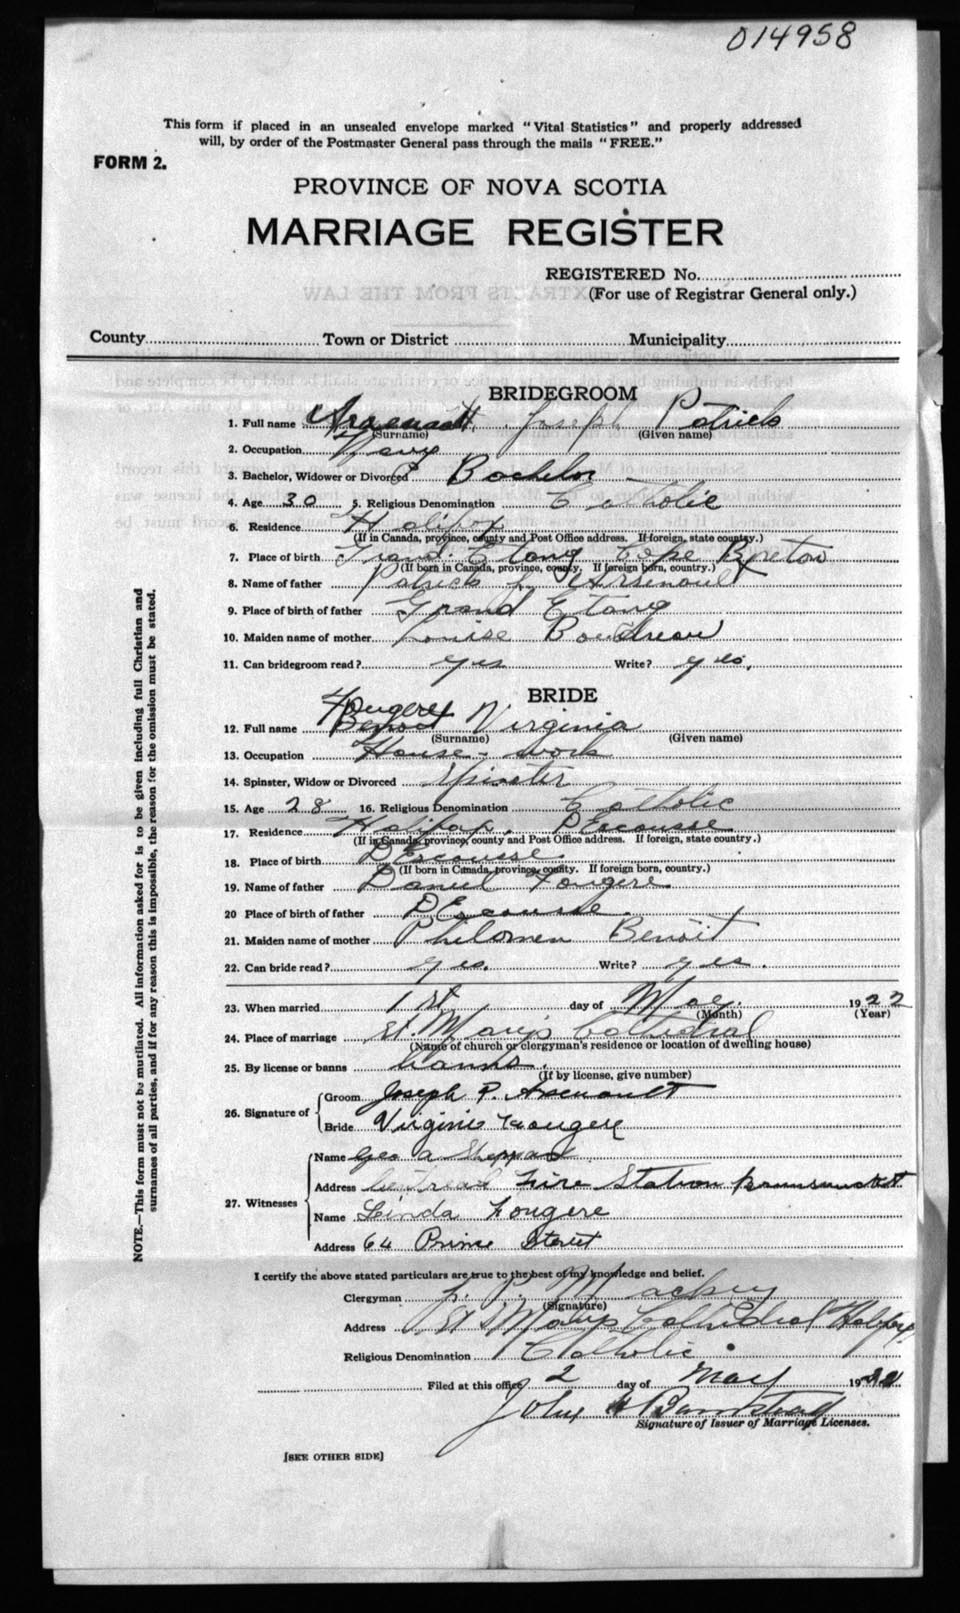 014958
This form if placed in an unsealed envelope marked "Vital Statistics" and properly addressed
will, by order of the Postmaster General pass through the mails "FREE."
FORM 2.
PROVINCE OF NOVA SCOTIA
MARRIAGE REGISTER
REGISTERED No.
(For use of Registrar General only.)
County Town or District Municipality
BRIDEGROOM
1. Full name Arsenault Joseph Patrick
(Surname) (Given name)
2. Occupation Navy
3. Bachelor, Widower or Divorced Bachelor
4. Age 30 5. Religious Denomination Catholic
6. Residence Halifax
(If in Canada, province, county and Post Office address. If foreign, state country.)
7. Place of birth Grand Etang Cape Breton
(If born in Canada, province, county. If foreign born, country.)
8. Name of father Patrick Arsenault
9. Place of birth of father Grand Etang
10. Maiden name of mother Louise Boudreau
11. Can bridegroom read? yes Write? yes.
BRIDE
Fougere
12. Full name Benoit Virginia
(Surname) (Given name)
13. Occupation House-work
14. Spinster, Widow or Divorced Spinster
15. Age 28 16. Religious Denomination Catholic
17. Residence Halifax, DEscousse
(If in Canada, province, county and Post Office address. If foreign, state country.)
18. Place of birth DEscousse.
(If born in Canada, province, county. If foreign born, country.)
19. Name of father Daniel Fougere
20 Place of birth of father DEscousse.
21. Maiden name of mother Philomen Benoit
22. Can bride read? yes. Write? yes.
23. When married 1st day of May. 1922
(Month) (Year)
24. Place of marriage St. Mary's Cathedral
(Name of church or clergyman's residence or location of dwelling house)
25. By license or banns banns.
(If by license, give number)
26. Signature of Groom Joseph P. Arsenault
Bride Virginie Fougere
27. Witnesses Name Geo a Sheppard
Address Central Fire Station Brunswick St
Name Linda Fougere
Address 64 Prince Street
I certify the above stated particulars are true to the best of my knowledge and belief.
Clergyman P. Mackey
(Signature)
Address St Mary's Cathedral Halifax
Religious Denomination Catholic.
Filed at this office 2 day of May 1922
John
Signature of Issuer of Marriage Licenses.
[SEE OTHER SIDE]
NOTE.—This form must not be mutilated. All information asked for is to be given including full Christian and
surnames of all parties, and if for any reason this is impossible, the reason for the omission must be stated.